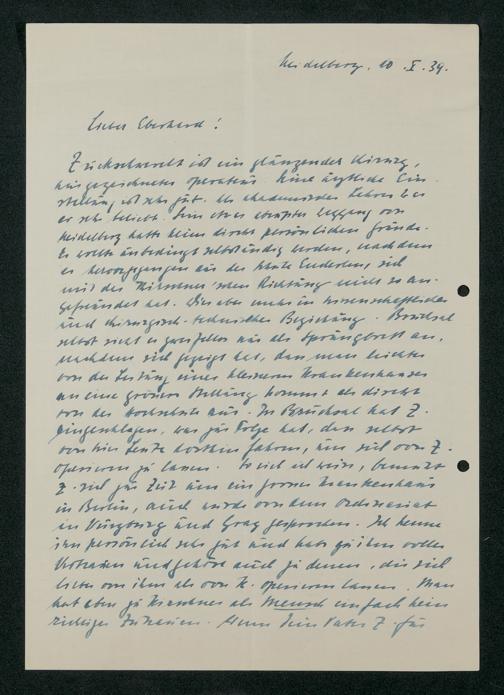 Heidelberg. 10.X.39.
Lieber Eberhard!
Zuckschwerdt ist ein glänzender Chirurg,
ausgezeichneter Operateur. Seine ärztliche Ein-
stellung ist sehr gut. Als akademischer Lehrer ist
er sehr beliebt. Sein etwas abrupter Weggang von
Heidelberg hatte keine direkt persönlichen Gründe.
Er wollte unbedingt selbständig werden, nachdem
er hervorgegangen aus der Schule Enderlen, sich
mit der Kirschner'schen Richtung nicht so an-
gefreundet hat. Dies aber mehr in wissenschaftlicher
und chirurgisch-technischer Beziehung. Bruchsal
selbst sieht er zweifellos nur als Sprungbrett an,
nachdem sich gezeigt hat, dass man leichter
von der Leitung eines kleineren Krankenhauses
an eine grössere Stellung kommt als direkt
von der Hochschule aus. In Bruchsal hat Z.
eingeschlagen, was zur Folge hat, dass selbst
von hier Leute dorthin fahren, um sich von Z.
operieren zu lassen. So viel ich weiss, bewirbt
Z. sich zur Zeit um ein grosses Krankenhaus
in Berlin, auch wurde von dem Ordinariat
in Würzburg und Graz gesprochen. Ich kenne
ihn persönlich sehr gut und habe zu ihm volles
Vertrauen und gehöre auch zu denen, die sich
lieber von ihm als von K. operieren lassen. Man
hat aber zu Kirschner als Mensch einfach kein
richtiges Zutrauen. Wenn Dein Vater Z. für